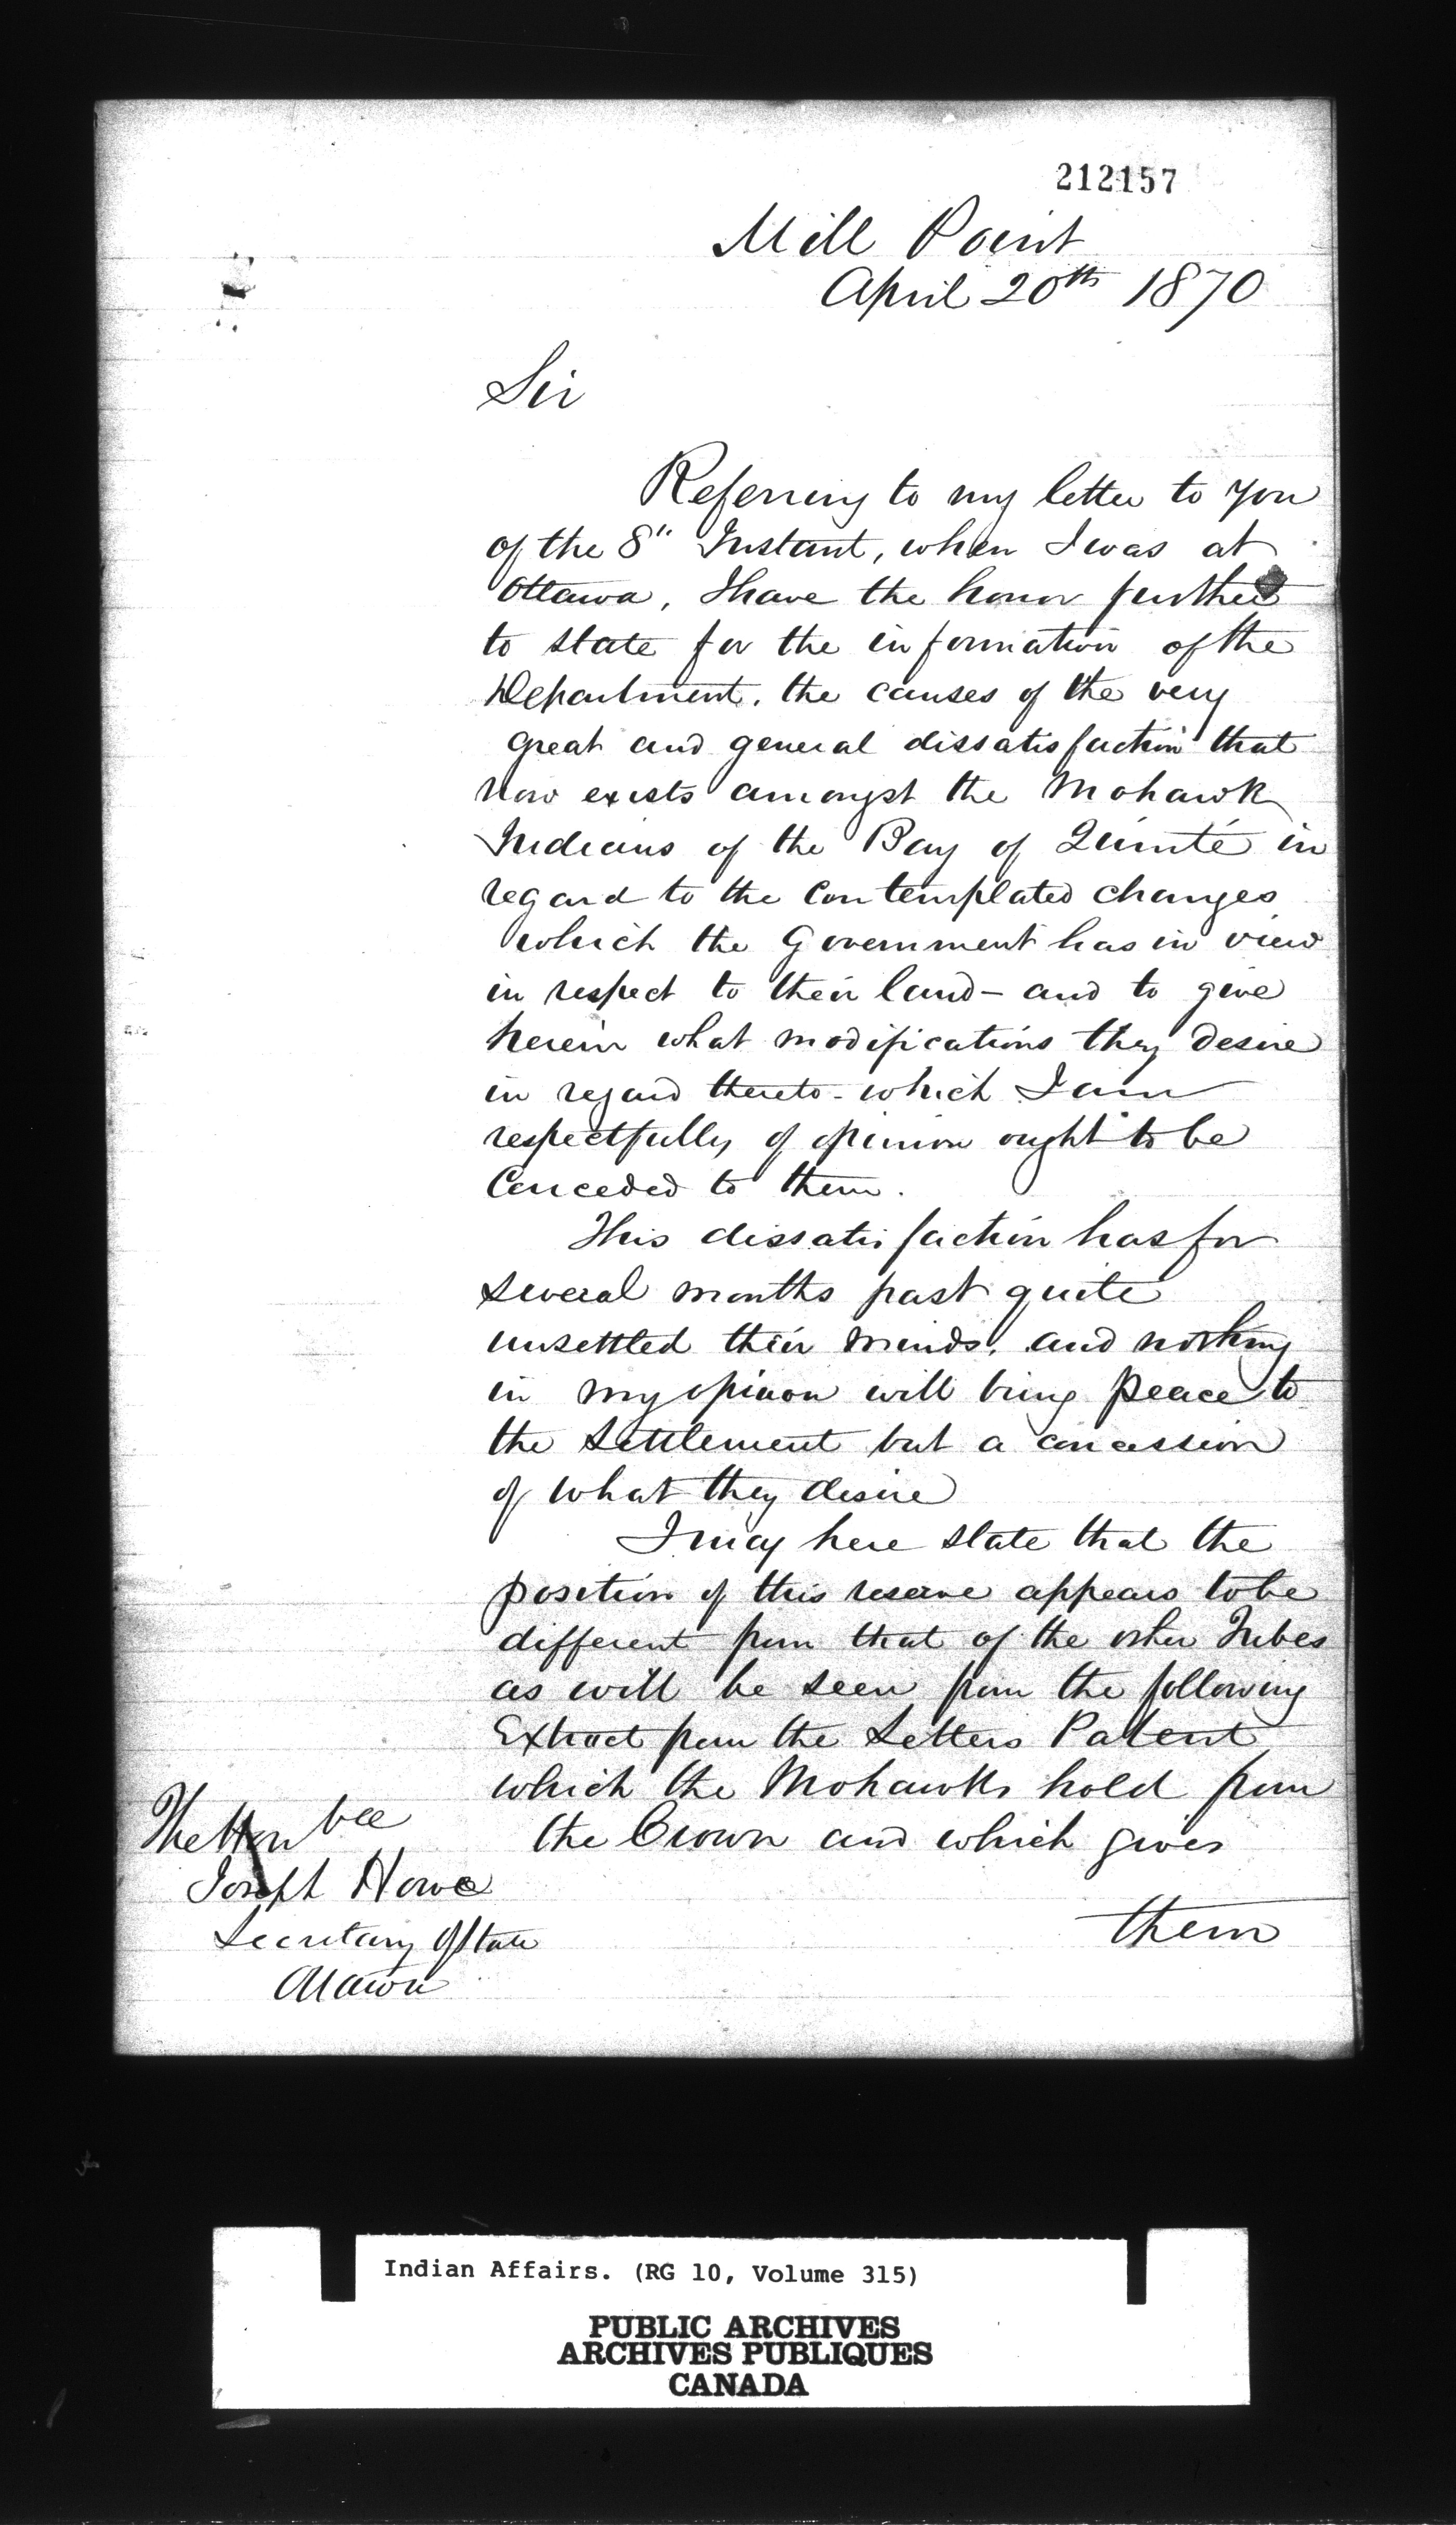 212157
Mill Point
April 20th 1870
Sir
Referring to my letter to you
of the 8" Instant, when I was at
Ottawa, I have the honor further
to state for the information of the
Department, the causes of the very
great and general dissatisfaction that
now exists amongst the Mohawk
Indians of the Bay of Quinté in
regard to the contemplated changes
which the Government has in view
in respect to their land - and to give
herein what modifications they desire
in regard thereto - which I am
respectfully of opinion ought to be
Conceded to them.
This dissatisfaction has for
several months past quite
unsettled their minds, and nothing
in my opinion will bring peace to
the Settlement but a concession
of what they desire
I may here state that the
position of this reserve appears to be
different from that of the other Tribes
as will be seen from the following
Extract from the Letters Patent
which the Mohawks hold from
the Crown and which gives
them
The Honble
Joseph Howe
Secretary of State
Ottawa
Indian Affairs. (RG 10, Volume 315)
PUBLIC ARCHIVES
ARCHIVES PUBLIQUES
CANADA